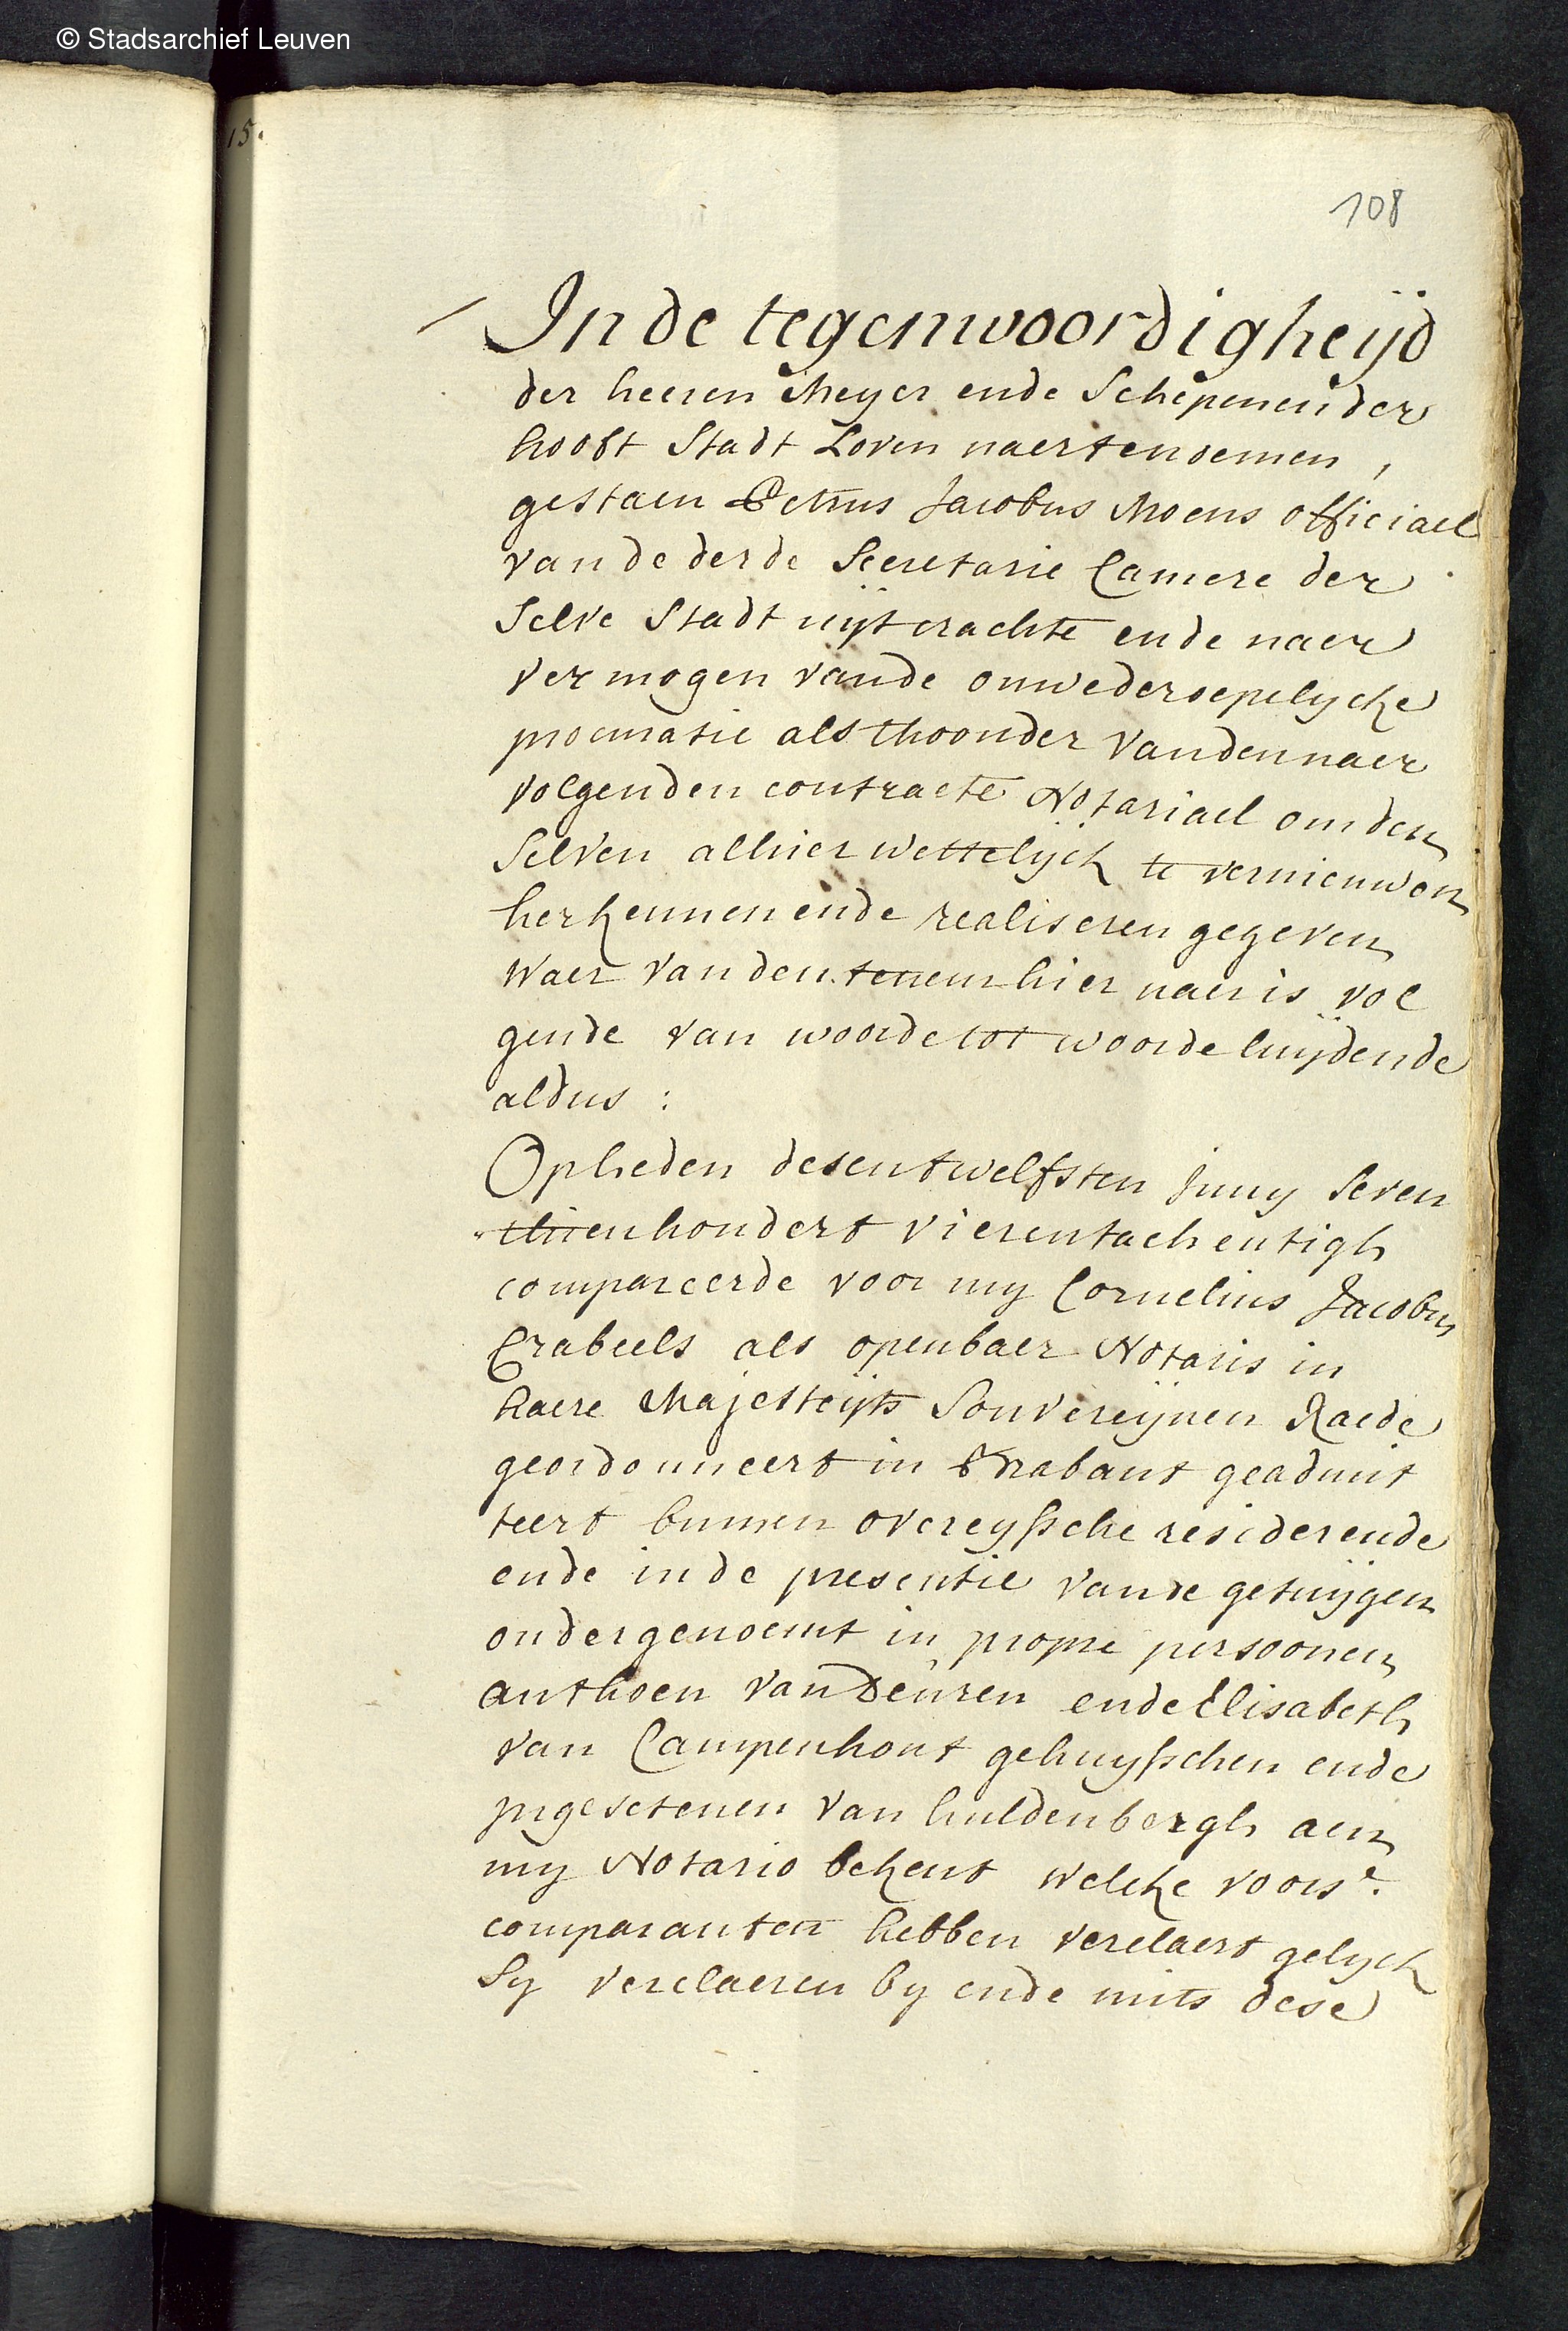 © Stadsarchief Leuven
15.
108
In de tegenwoordigheijd
der heeren Meyer ende Schepenen der
hooft Stadt Loven naertenoemen,
gestaen Petrus Jacobus Moens officiael
van de derde Secretarie Camere der
Selve Stadt uijt crachte ende naer
vermogen vande onwederoepelycke
procuratie als thoonder vanden naer
volgenden contracte Notariael om den
Selven alhier wettelijck te vernieuwen
herkennen ende realiseren gegeven
Waer van den teneur hier naer is vol
gende van woorde tot woorde luijdende
aldus :
Op heden desen twelfsten Juny Seven
thien hondert vierentachentigh
compareerde voor my Cornelius Jacobus
Crabeels als openbaer Notaris in
haere Majesteijts Souvereijnen Raede
geordonneert in Brabant geadmit
teert binnen overeyssche residerende
ende in de presentie vande getuijgen
ondergenoemt in propre persoonen
anthoen van Deuren ende Elisabeth
van Campenhout gehuysschen ende
ingesetenen van huldenbergh aen
my Notario bekent welcke voors.
comparanten hebben verclaert gelyck
Sy verclaeren by ende mits dese